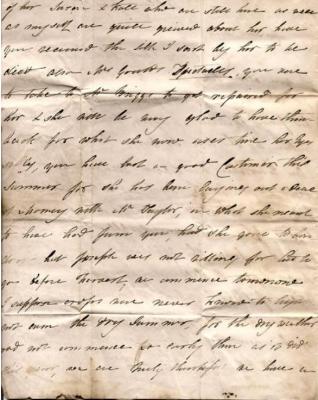 of her Susan & Kate who are still here as well
as myself are quite grieved about her have
you received the silk I sent by her to be
died also Mrs Goulds Spectacles you were
to take to Mr to get repaired for
her & she will be very glad to have them
back for what she now uses tire her Eyes
sadly, you have lost a good Customer this
Summer for she has been buying out a deal
of Money with Mr Taylor, in what she meant
to have had from you, had she gone
but Joseph was not willing for her to
go before Harvest, we commence tomorrow
I suppose crops were never known to
not even the dry Summer, for the dry weather
did not commence so early then as it did
this year, we are truly thankful we have a